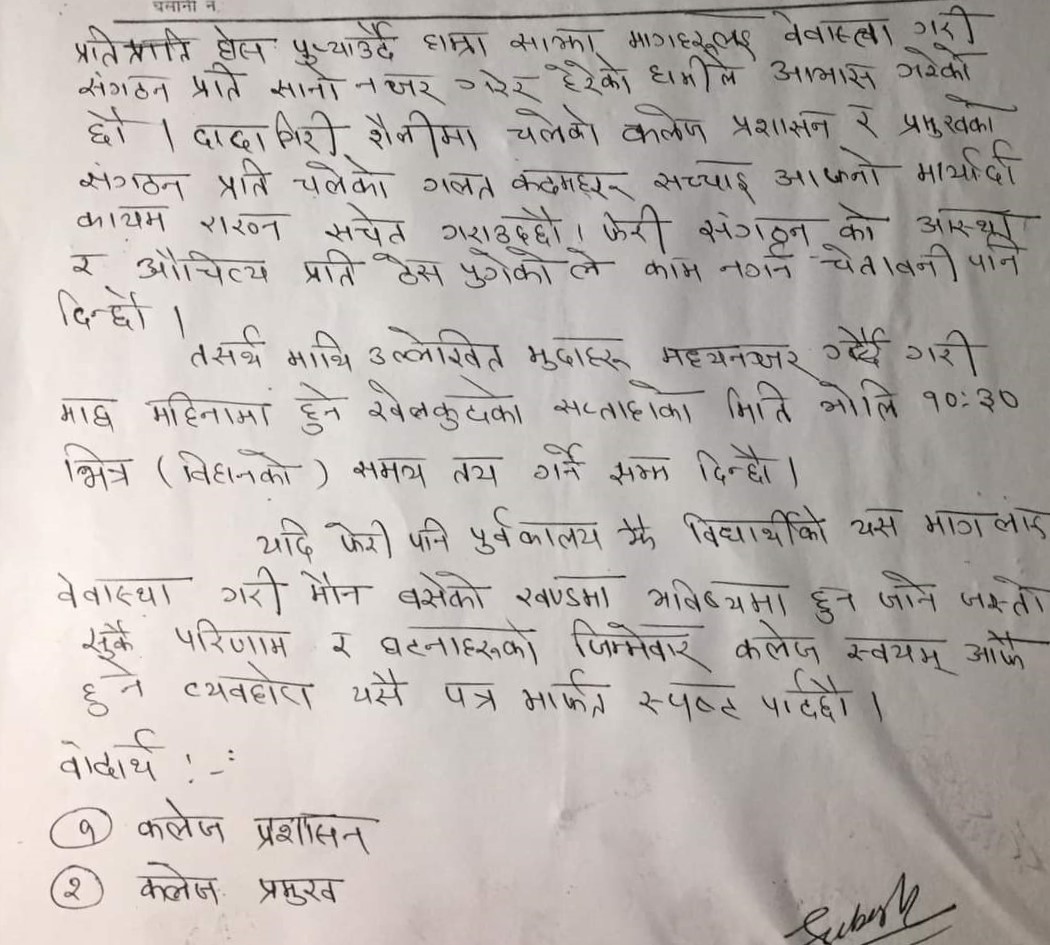 चलानी नं.
प्रति ठेस पुर्‍याउदै हाम्रा साझा मागहरुलाइ वेवास्था गरी
संगठन प्रति सानो नजर गरेर हेरेको हामीले आभास गरेको
छौ । दादागिरी शैलीमा चलेको कलेज प्रशासन र प्रमुखका
संगठन प्रति चलेको गलत कदमहरु सच्चाइ आफ्नो मार्यादा
कायम राख्न सचेत गराउदछौ । फेरी संगठन को आस्था
र औचित्य प्रति ठेस पुगेको ले काम नगर्न चेतावनी पनि
दिन्छौ ।
तसर्थ माथि उल्लेखित मुद्दाहरु मध्यनजर गर्दै गरी
माघ महिनामा हुने खेलकुदका सप्ताहाको मिति भोलि १०:३०
भित्र (विहानको) समय तय गर्न सम्म दिन्छौ ।
यदि फेरी पनि पुर्वकालय झै विद्यार्थीको यस माग लाइ
वेवास्था गरी मौन बसेको खण्डमा भविष्यमा हुन जाने जस्तो
सुकै परिणाम र घटनाहरुको जिम्मेवार कलेज स्वयम् आफै
हुने व्यवहोरा यसै पत्र मार्फत स्पष्ट पार्दछौ ।
वोदार्थ :-
१ कलेज प्रशासन
२ कलेज प्रमुख